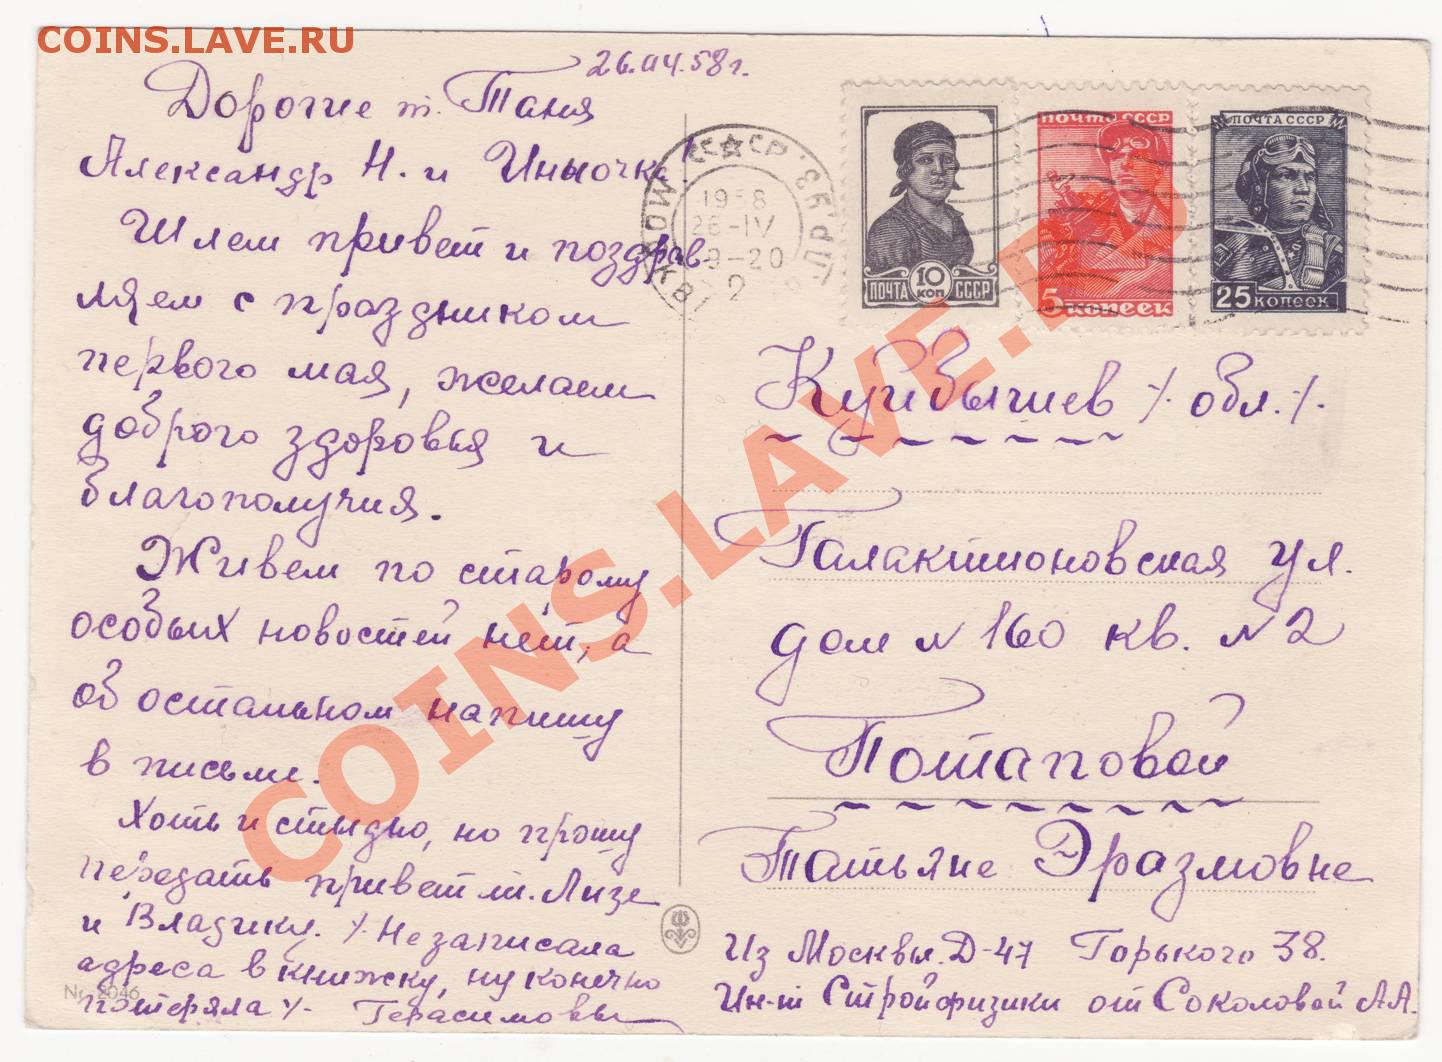 COINS.LAVE.RU
26.04.58 г.
Дорогие т. Таня
Александр Н. и Инночка!
Шлем привет и поздрав-
ляем с праздником
первого мая, желаем
доброго здоровья и
благополучия.
Живем по старому
особых новостей нет, а
об остальном напишу
в письме.
Хоть и стыдно, но прошу
передать привет т. Лизе
и Владику. /Не записала
адреса в книжку, ну конечно
потеряла/- Герасимовы
Nr. 2046
МОСКВА СССР
1958
26-IV
9-20
2
10
КОП
ПОЧТА СССР
ПОЧТА СССР
5 КОПЕЕК
ПОЧТА СССР
25 КОПЕЕК
Куйбышев /обл./.
Галактионовская ул.
дом № 160 кв. № 2
Потаповой
Татьяне Эразмовне
Из Москвы. Д-47 Горького 38.
Ин-т Стройфизики от Соколовой А.А.
COINS.LAVE.RU